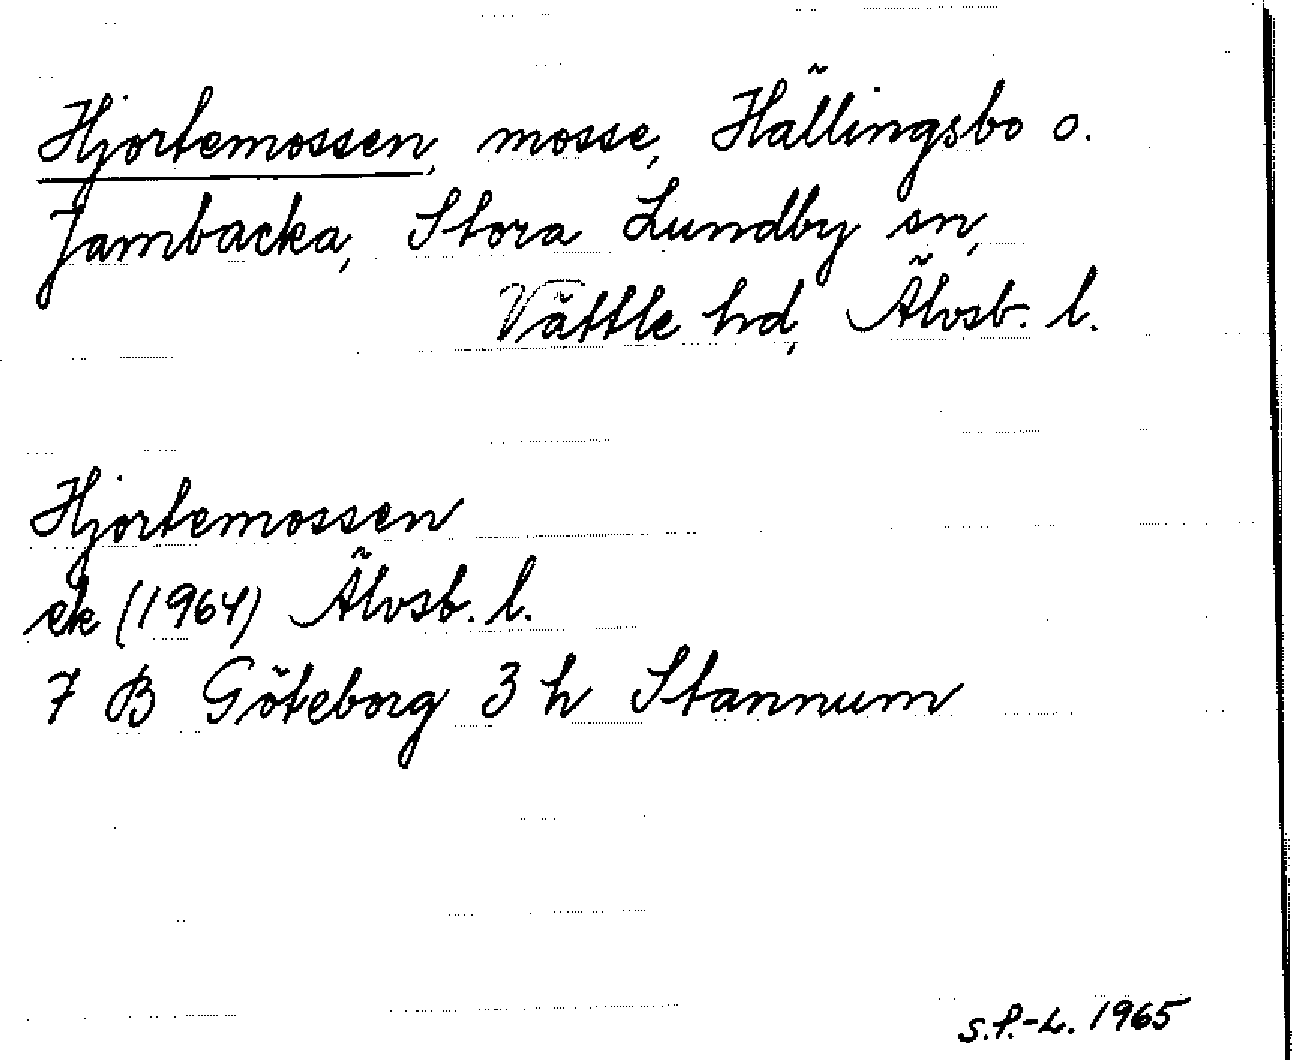 Hjortemossen, mosse, Hällingsbo o.
Jambacka, Stora Lundby sn,
Vättle hd, Älvsb. l.
Hjortemossen
ek (1964) Älvsb. l.
7 B Göteborg 3 h Stannum
S.P.-L. 1965